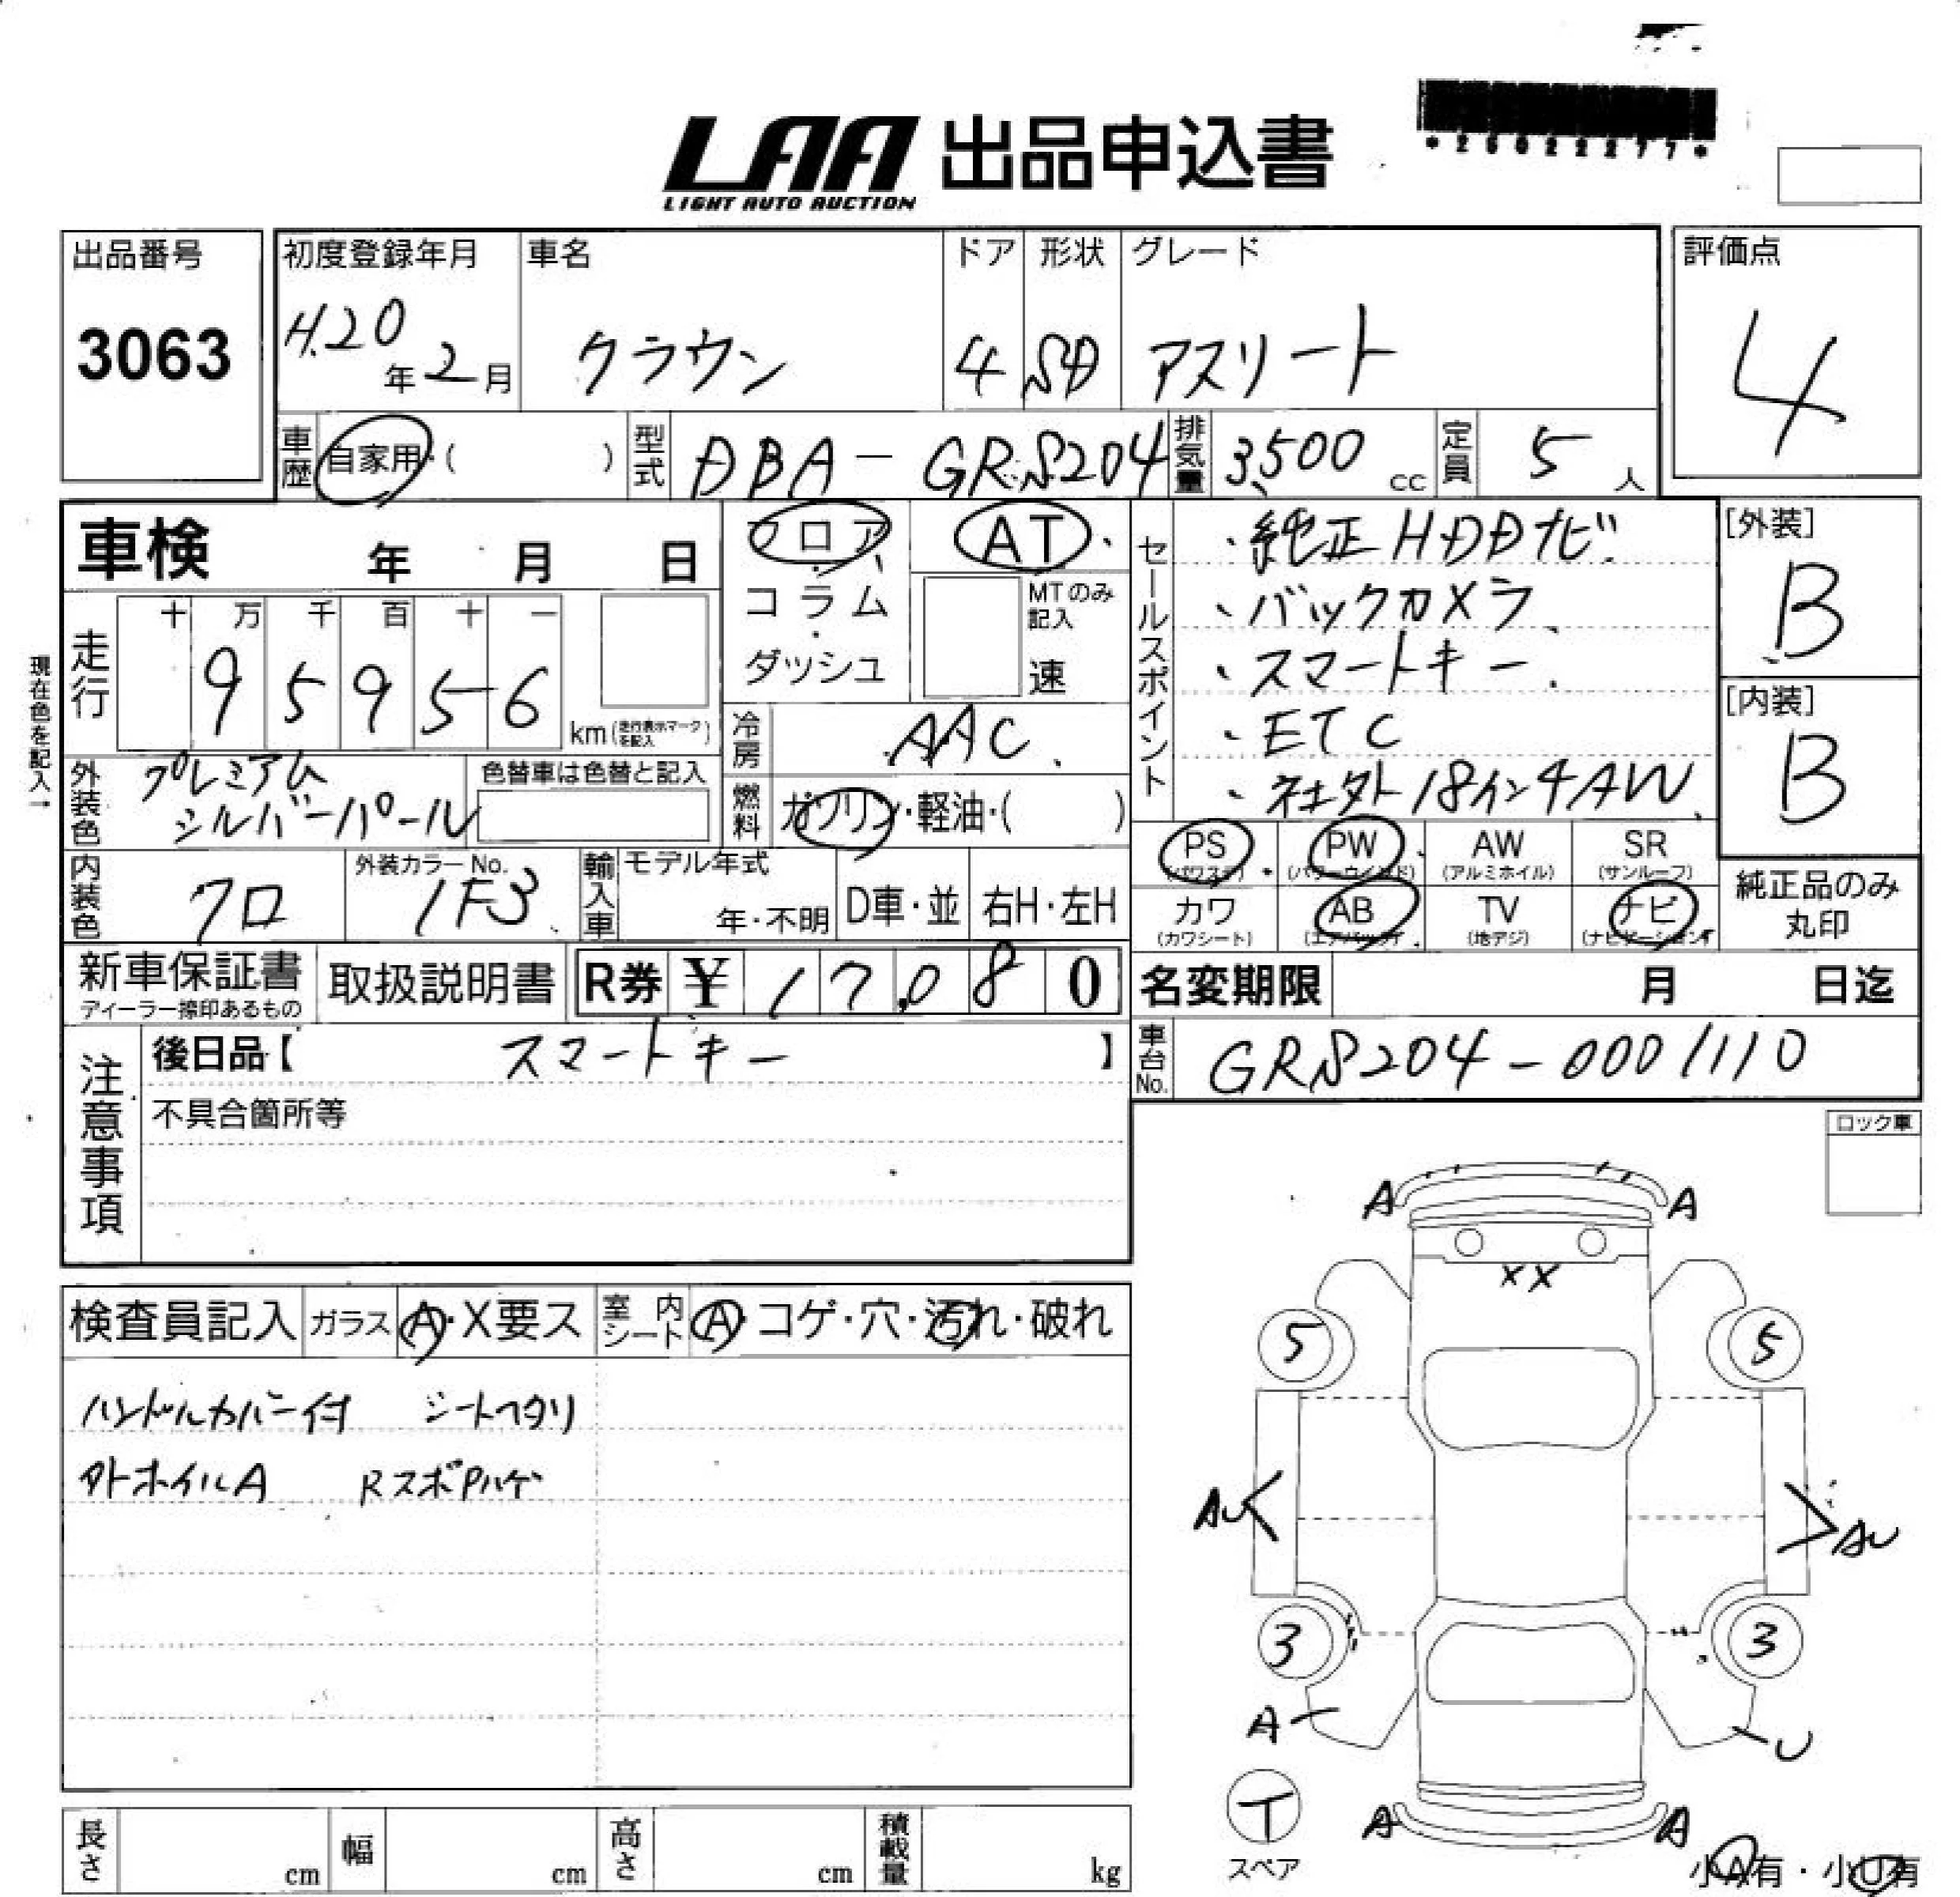 LAA 出品申込書
LIGHT AUTO AUCTION
*25022277*
出品番号
3063
初度登録年月
H.20年2月
車名
クラウン
ドア
4
形状
SD
グレード
アスリート
評価点
4
車歴 自家用・( )
型式 DBA-GRS204
排気量 3,500 cc
定員 5人
車検 年 月 日
フロア・コラム・ダッシュ
AT
MTのみ記入
速
走行
十 万 千 百 十 一
9 5 9 5 6
km(走行表示マークを記入)
現在色を記入→
冷房 AAC
外装色 プレミアム
シルバーパール
色替車は色替と記入
燃料 ガソリン・軽油・( )
内装色 クロ
外装カラーNo.
1F3
輸入車
モデル年式
年・不明
D車・並
右H・左H
セールスポイント
・純正HDDナビ
・バックカメラ
・スマートキー
・ETC
・社外18インチAW
[外装]
B
[内装]
B
PS (パワステ)
PW (パワーウインド)
AW (アルミホイル)
SR (サンルーフ)
カワ (カワシート)
AB (エアバッグ)
TV (地デジ)
ナビ (ナビゲーション)
純正品のみ
丸印
新車保証書
ディーラー捺印あるもの
取扱説明書
R券 ¥ 17,080
名変期限 月 日迄
車台No. GRS204-0001110
注意事項
後日品【 スマートキー 】
不具合箇所等
ロック車
検査員記入
ガラス A・X要ス
室内シート A・コゲ・穴・汚れ・破れ
ハンドルカバー付 シートヘタリ
外ホイルA RスポPハゲ
A A
XX
5 5
AU AU
3 3
A U
T
スペア
A A
小A有・小U有
長さ cm
幅 cm
高さ cm
積載量 kg